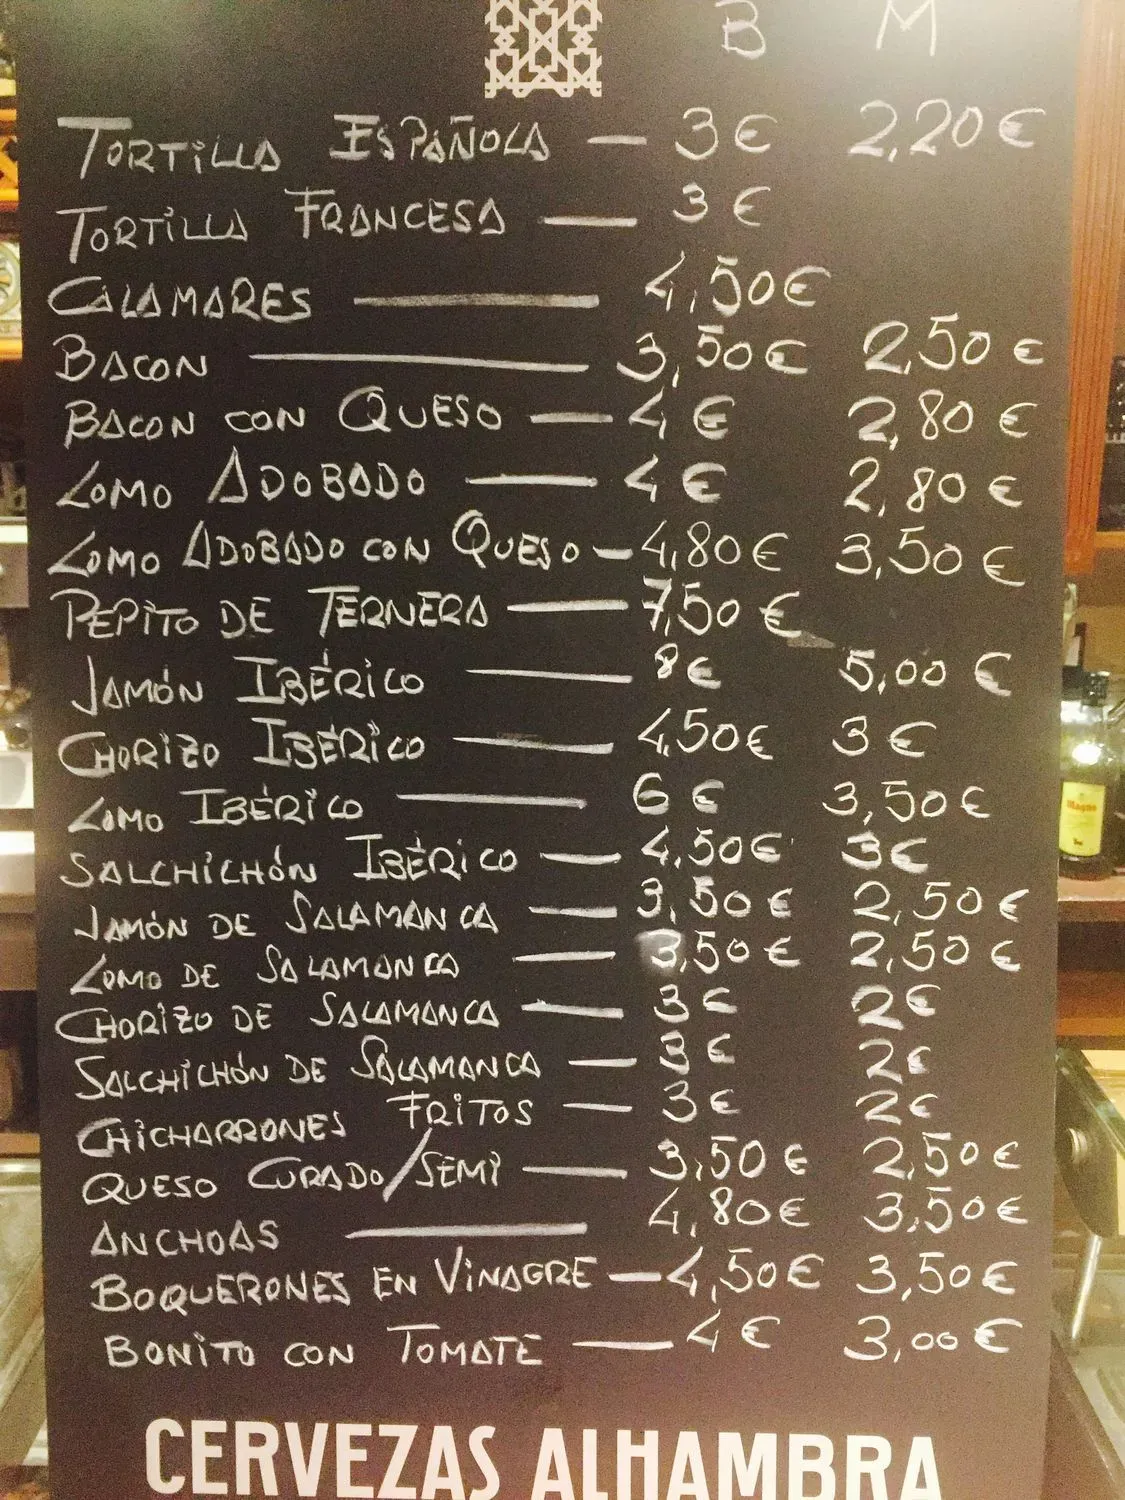 B M
TORTILLA ESPAÑOLA — 3€ 2,20€
TORTILLA FRANCESA — 3€
CALAMARES — 4,50€
BACON — 3,50€ 2,50€
BACON CON QUESO — 4€ 2,80€
LOMO ADOBADO — 4€ 2,80€
LOMO ADOBADO CON QUESO — 4,80€ 3,50€
PEPITO DE TERNERA — 7,50€
JAMÓN IBÉRICO — 8€ 5,00€
CHORIZO IBÉRICO — 4,50€ 3€
LOMO IBÉRICO — 6€ 3,50€
SALCHICHÓN IBÉRICO — 4,50€ 3€
JAMÓN DE SALAMANCA — 3,50€ 2,50€
LOMO DE SALAMANCA — 3,50€ 2,50€
CHORIZO DE SALAMANCA — 3€ 2€
SALCHICHÓN DE SALAMANCA — 3€ 2€
CHICHARRONES FRITOS — 3€ 2€
QUESO CURADO/SEMI — 3,50€ 2,50€
ANCHOAS — 4,80€ 3,50€
BOQUERONES EN VINAGRE — 4,50€ 3,50€
BONITO CON TOMATE — 4€ 3,00€
CERVEZAS ALHAMBRA
Magno